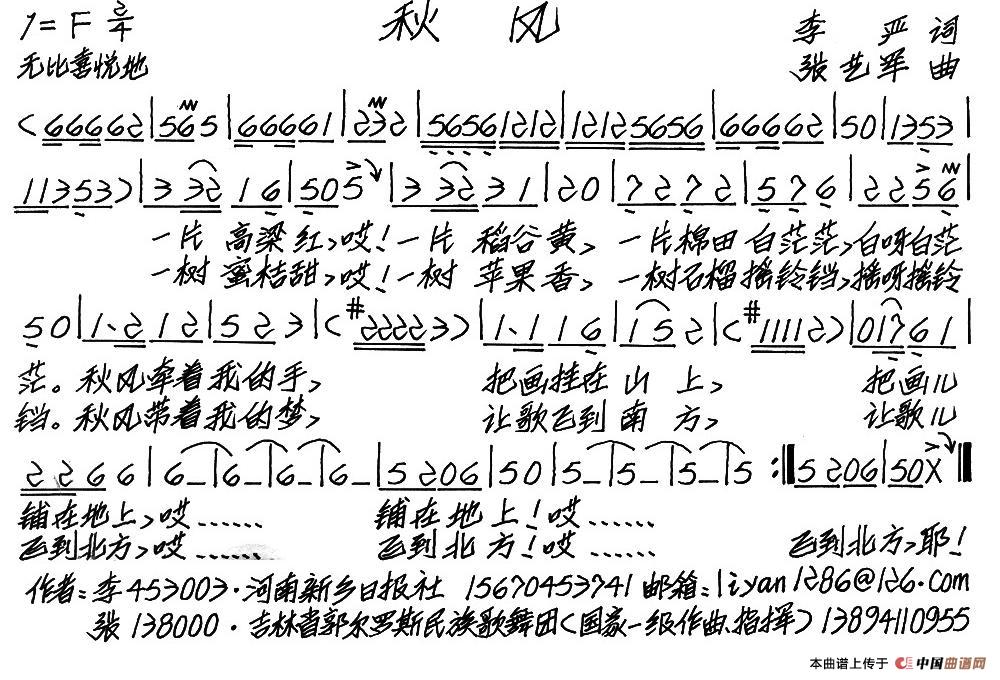 1=F 2/4 秋 风 李 严 词
无比喜悦地 张艺军 曲
(66662|565|66661|232|56561212|12125656|66662|50|1353|
11353)|3 32 16|505|3 32 31|20|7272|576|2256|
一片 高粱红,哎!一片 稻谷黄, 一片棉田 白茫茫,白呀白茫
一树 蜜桔甜,哎!一树 苹果香, 一树石榴摇铃铛,摇呀摇铃
50|1·212|523|(#22223)|1·116|152|(#11112)|01761|
茫。秋风牵着我的手, 把画挂在 山 上, 把画儿
铛。秋风带着我的梦, 让歌飞到 南 方, 让歌儿
2266|6_|6_|6_|6_|5206|50|5_|5_|5_|5:‖5206|50X‖
铺在地上,哎…… 铺在地上!哎……
飞到北方,哎…… 飞到北方!哎…… 飞到北方,耶!
作者:李453003·河南新乡日报社 15670453741邮箱:liyan1286@126.com
张138000·吉林省郭尔罗斯民族歌舞团(国家一级作曲、指挥)13894110955
本曲谱上传于 中国曲谱网